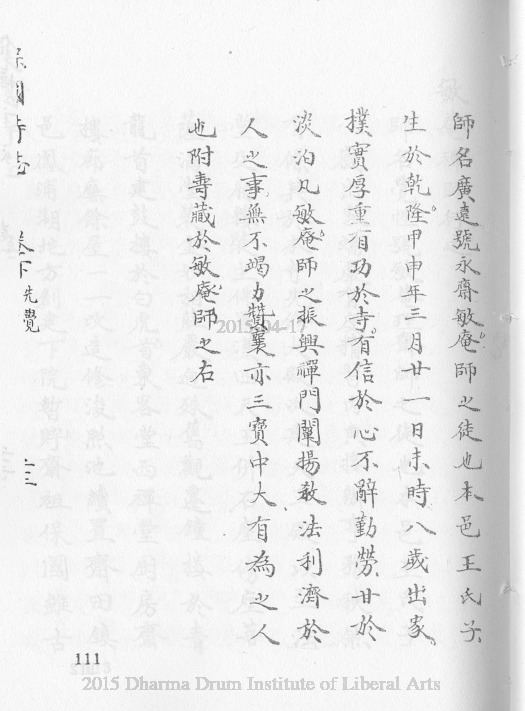 師名廣遠號永齋敏庵師之徒也本邑王氏子
生於乾隆甲申年三月廿一日未時八歲出家
樸實厚重有功於寺有信於心不辭勤勞甘於
淡泊凡敏庵師之振興禪門闡揚教法利濟於
人之事無不竭力贊襄亦三寶中大有為之人
也附壽藏於敏庵師之右
保國寺志 卷下 先覺 十三
111
2015-04-17
2015 Dharma Drum Institute of Liberal Arts